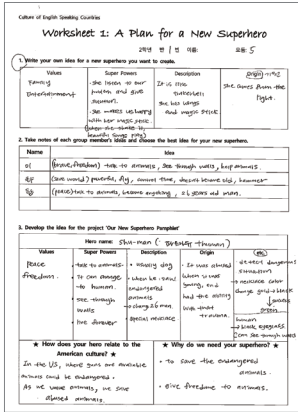 Culture of English Speaking Countries
Worksheet 1: A Plan for a New Superhero
2학년 반 1번 이름: 모둠: 5
1. Write your own idea for a new superhero you want to create.
Values
Super Powers
Description
Origin
Family
Entertainment
she listen to our problem and give solution.
she makes us happy with her magic stick.
(when she shake it, beautiful songs play)
It is like tinkerbell
she has wings and magic stick
she comes from the light.
2. Take notes of each group member's ideas and choose the best idea for your new superhero.
Name
Idea
(brave, freedom) talk to animals, see through walls, help animals.
(save world) powerful, fly, control time, doesn't become old, hammer
(peace) talk to animals, become anything, 26 years old man.
3. Develop the idea for the project 'Our New Superhero Pamphlet'
Hero name: Shu-man
Values
Super Powers
Description
Origin
etc.
peace
freedom.
talk to animals
It can change to human.
see through walls
live forever
usually dog
when he
endangered animals
special necklace
It was abused when it was young, and had the
with that trauma.
detect dangerous situation
→ necklace color change gold → black
green
human
→ black eyeglass
(can see through walls)
★ How does your hero relate to the American culture? ★
★ Why do we need your superhero? ★
In the US, where guns are available animals could be endangered.
As we value animals, we save abused animals.
to save the endangered animals.
give freedome to animals.